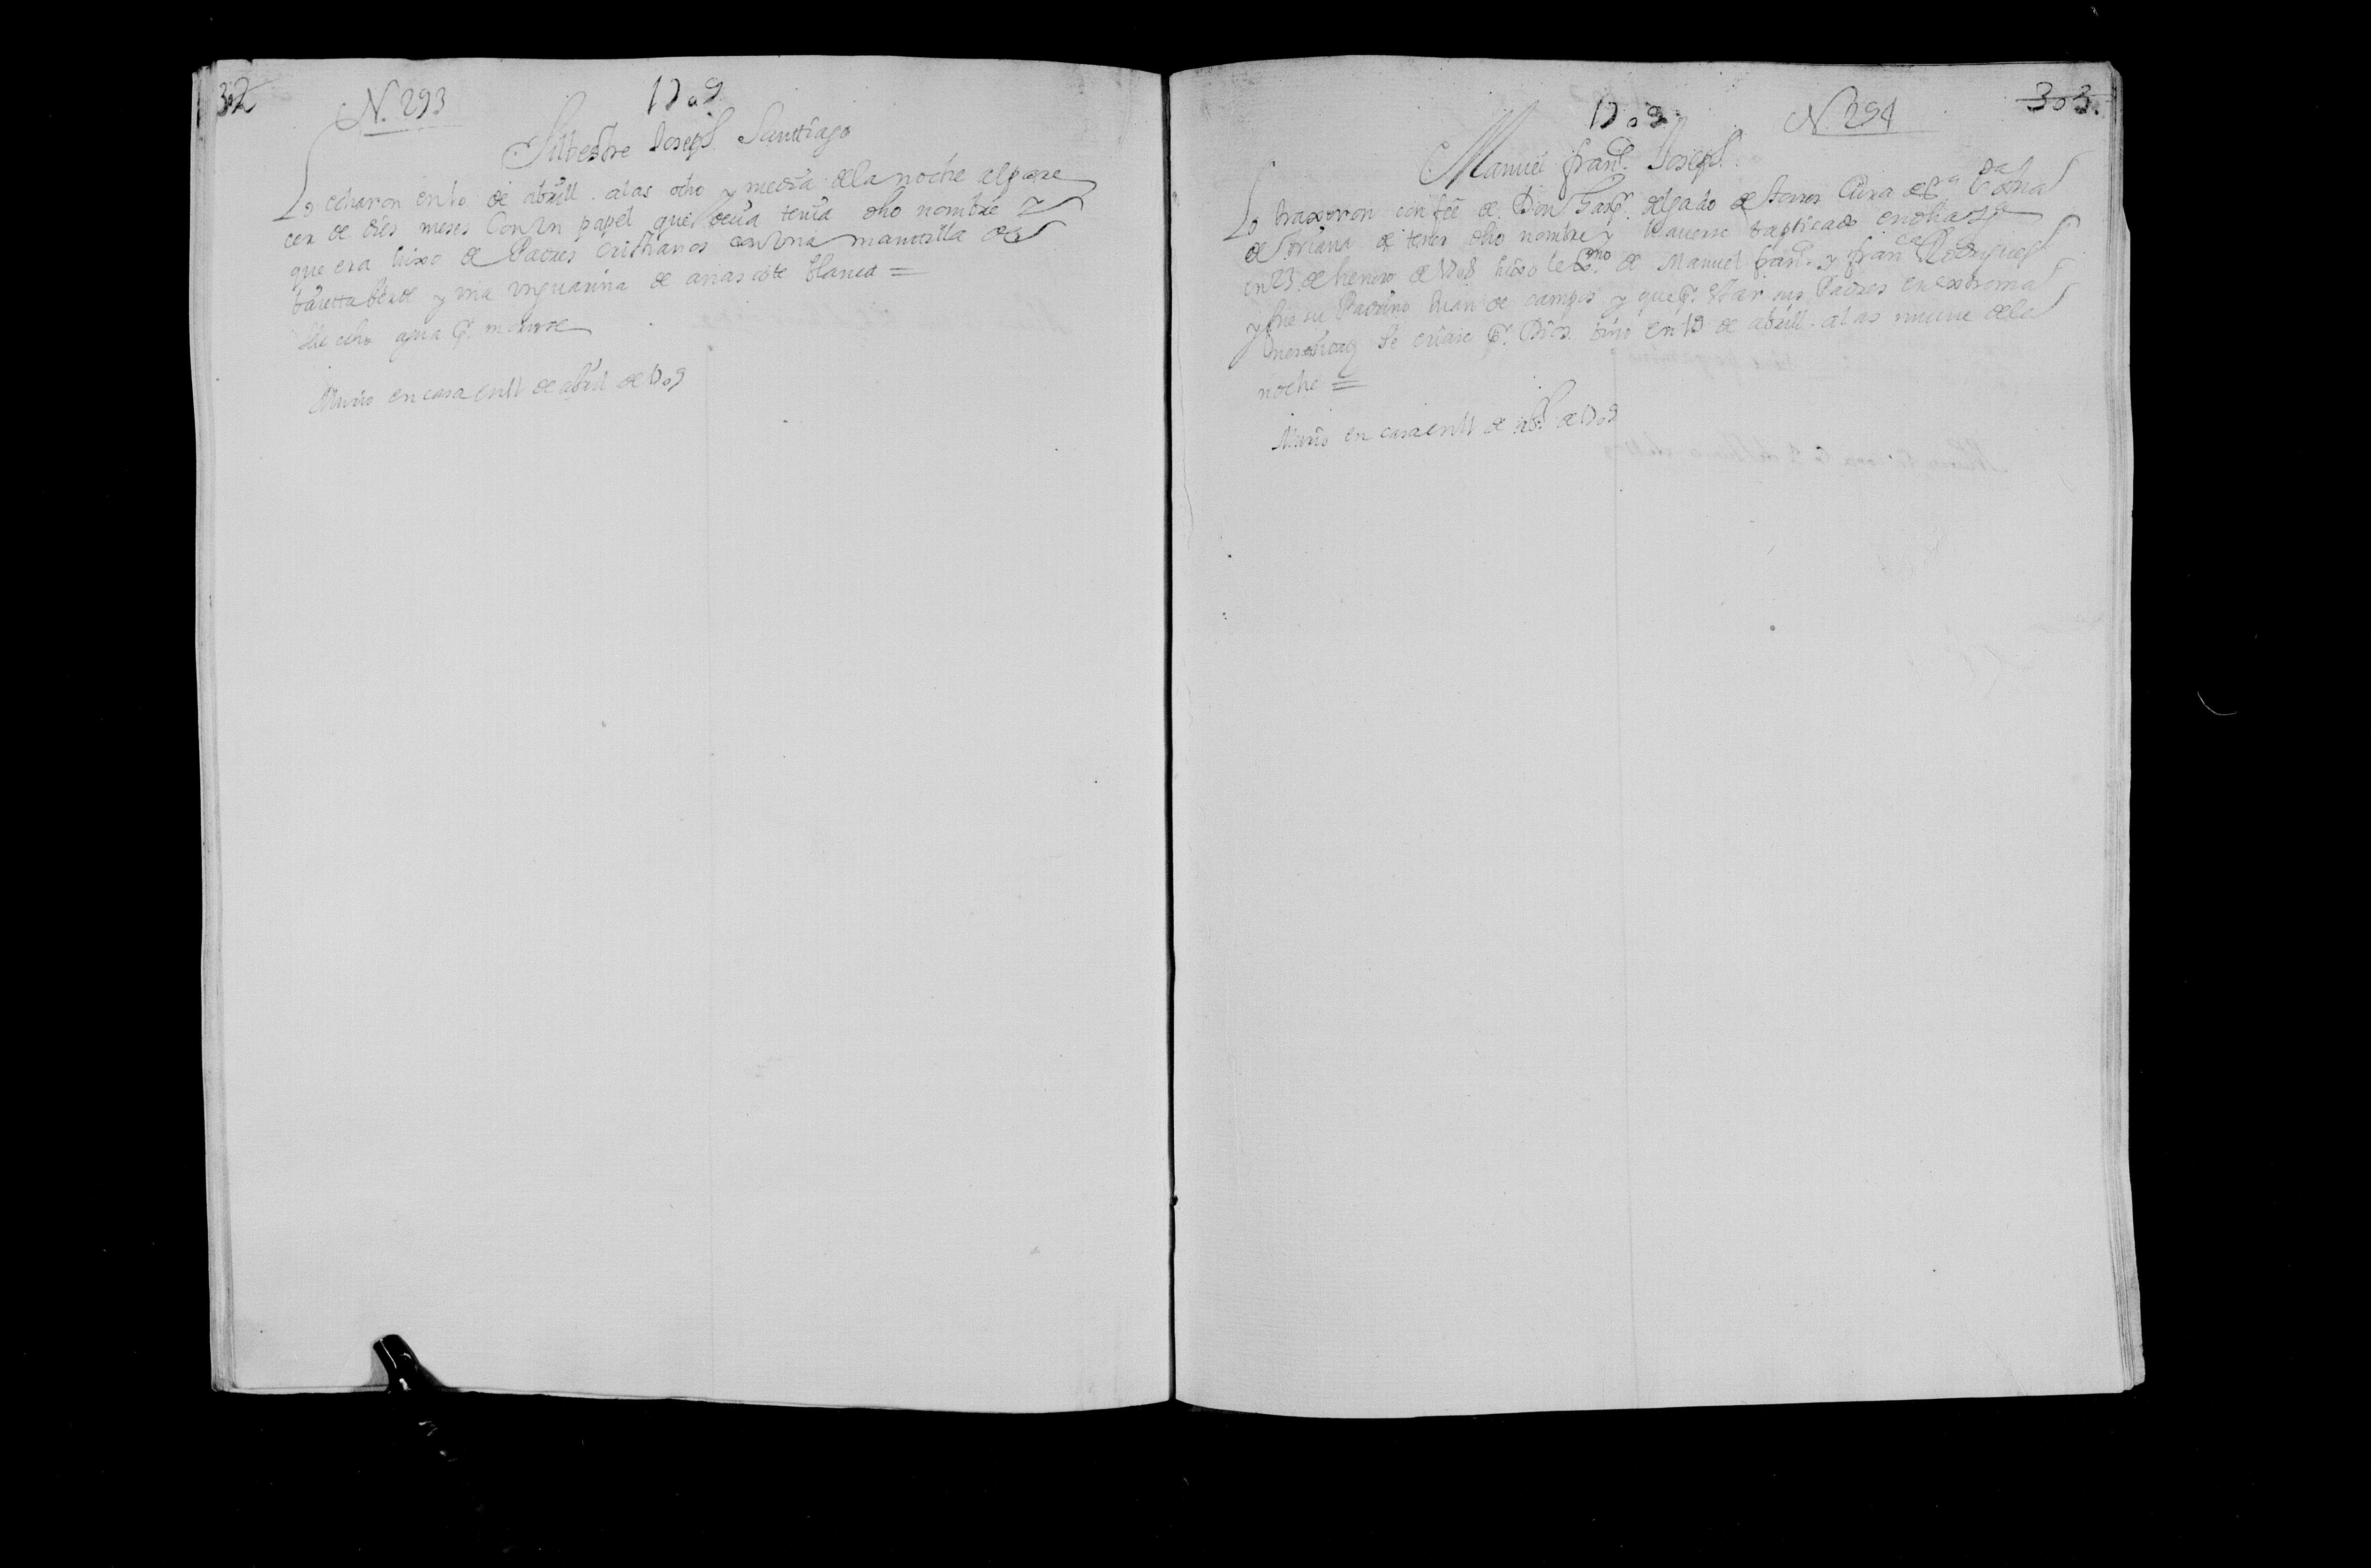 302
N. 293
1709
Silbestre Joseph Santtiago
Lo echaron en 10 de abrill. alas ocho y media dela noche al pare
cer de dies meses Con Un papel que decia tenia dho nombre y
que era hixo de Padres Cristianos con Una manttilla de
baietta berde y Una Unguarina de anascote blanca =
agua p.r
Murio en casa en 11 de abril de 1709
1709
N. 294
303.
Manuel fran.co Joseph
Lo traxeron con feé de Don Gasp.r delgado de torres Cura de
de triana de tener dho nombre y hauerse bapticado en dha
en 23 de henero de 1708 hixo de Manuel fran.co y fran.ca Rodrigues
y fue su Padrino Juan de campos y que p.r star sus Padres en extrema
nesesidad Se criase p.r Dios. bino en 10 de abrill. alas nueue dela
noche =
Murio en casa en 11 de ab.l de 1709